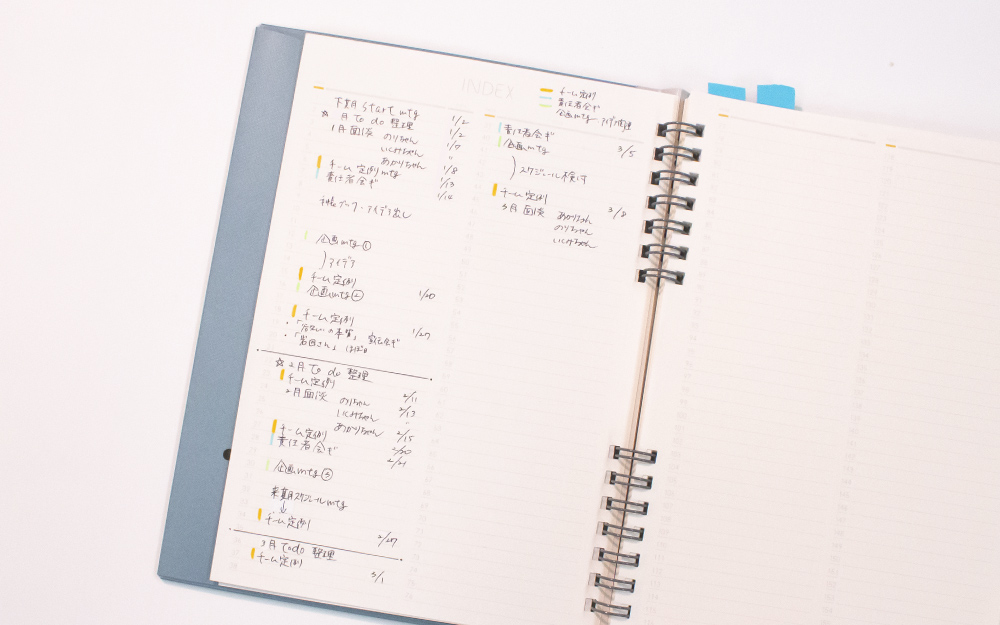 INDEX
チーム定例
責任者会ギ
企画mtg
下期 start mtg 1/2
☆ 月 to do 整理 1/2
1月面談 のりちゃん 1/7
いしみちゃん 〃
あかりちゃん 1/8
チーム定例mtg 1/13
責任者会ギ 1/14
アイデア出し
企画mtg①
アイデア
チーム定例
企画mtg② 1/20
チーム定例 1/27
☆ 2月 to do 整理
チーム定例 2/11
2月面談 のりちゃん 2/13
いしみちゃん 〃
あかりちゃん 2/15
チーム定例 2/20
責任者会ギ 2/21
企画mtg③
スケジュールmtg
↓
チーム定例 2/27
3月 todo 整理
チーム定例 3/1
責任者会ギ
企画mtg 3/5
スケジュール検討
チーム定例
3月面談 あかりちゃん 3/8
のりちゃん
いしみちゃん